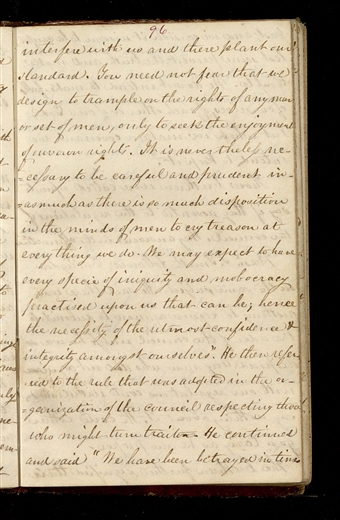 96
interfere with us and there plant our
standard. You need not fear that we
design to trample on the rights of any man
or set of men, only to seek the enjoyment
of our own rights. It is never the less ne-
=cessary to be careful and prudent in-
=asmuch as there is so much disposition
in the minds of men to cry treason at
every thing we do. We may expect to have
every specie of iniquity and mobocracy
practised upon us that can be; hence
the necessity of the utmost confidence &
integrity amongst ourselves". He then refer-
=red to the rule that was adopted in the or-
=ganization of the council respecting those
who might turn traitor. He continued
and said "We have been betrayed in times